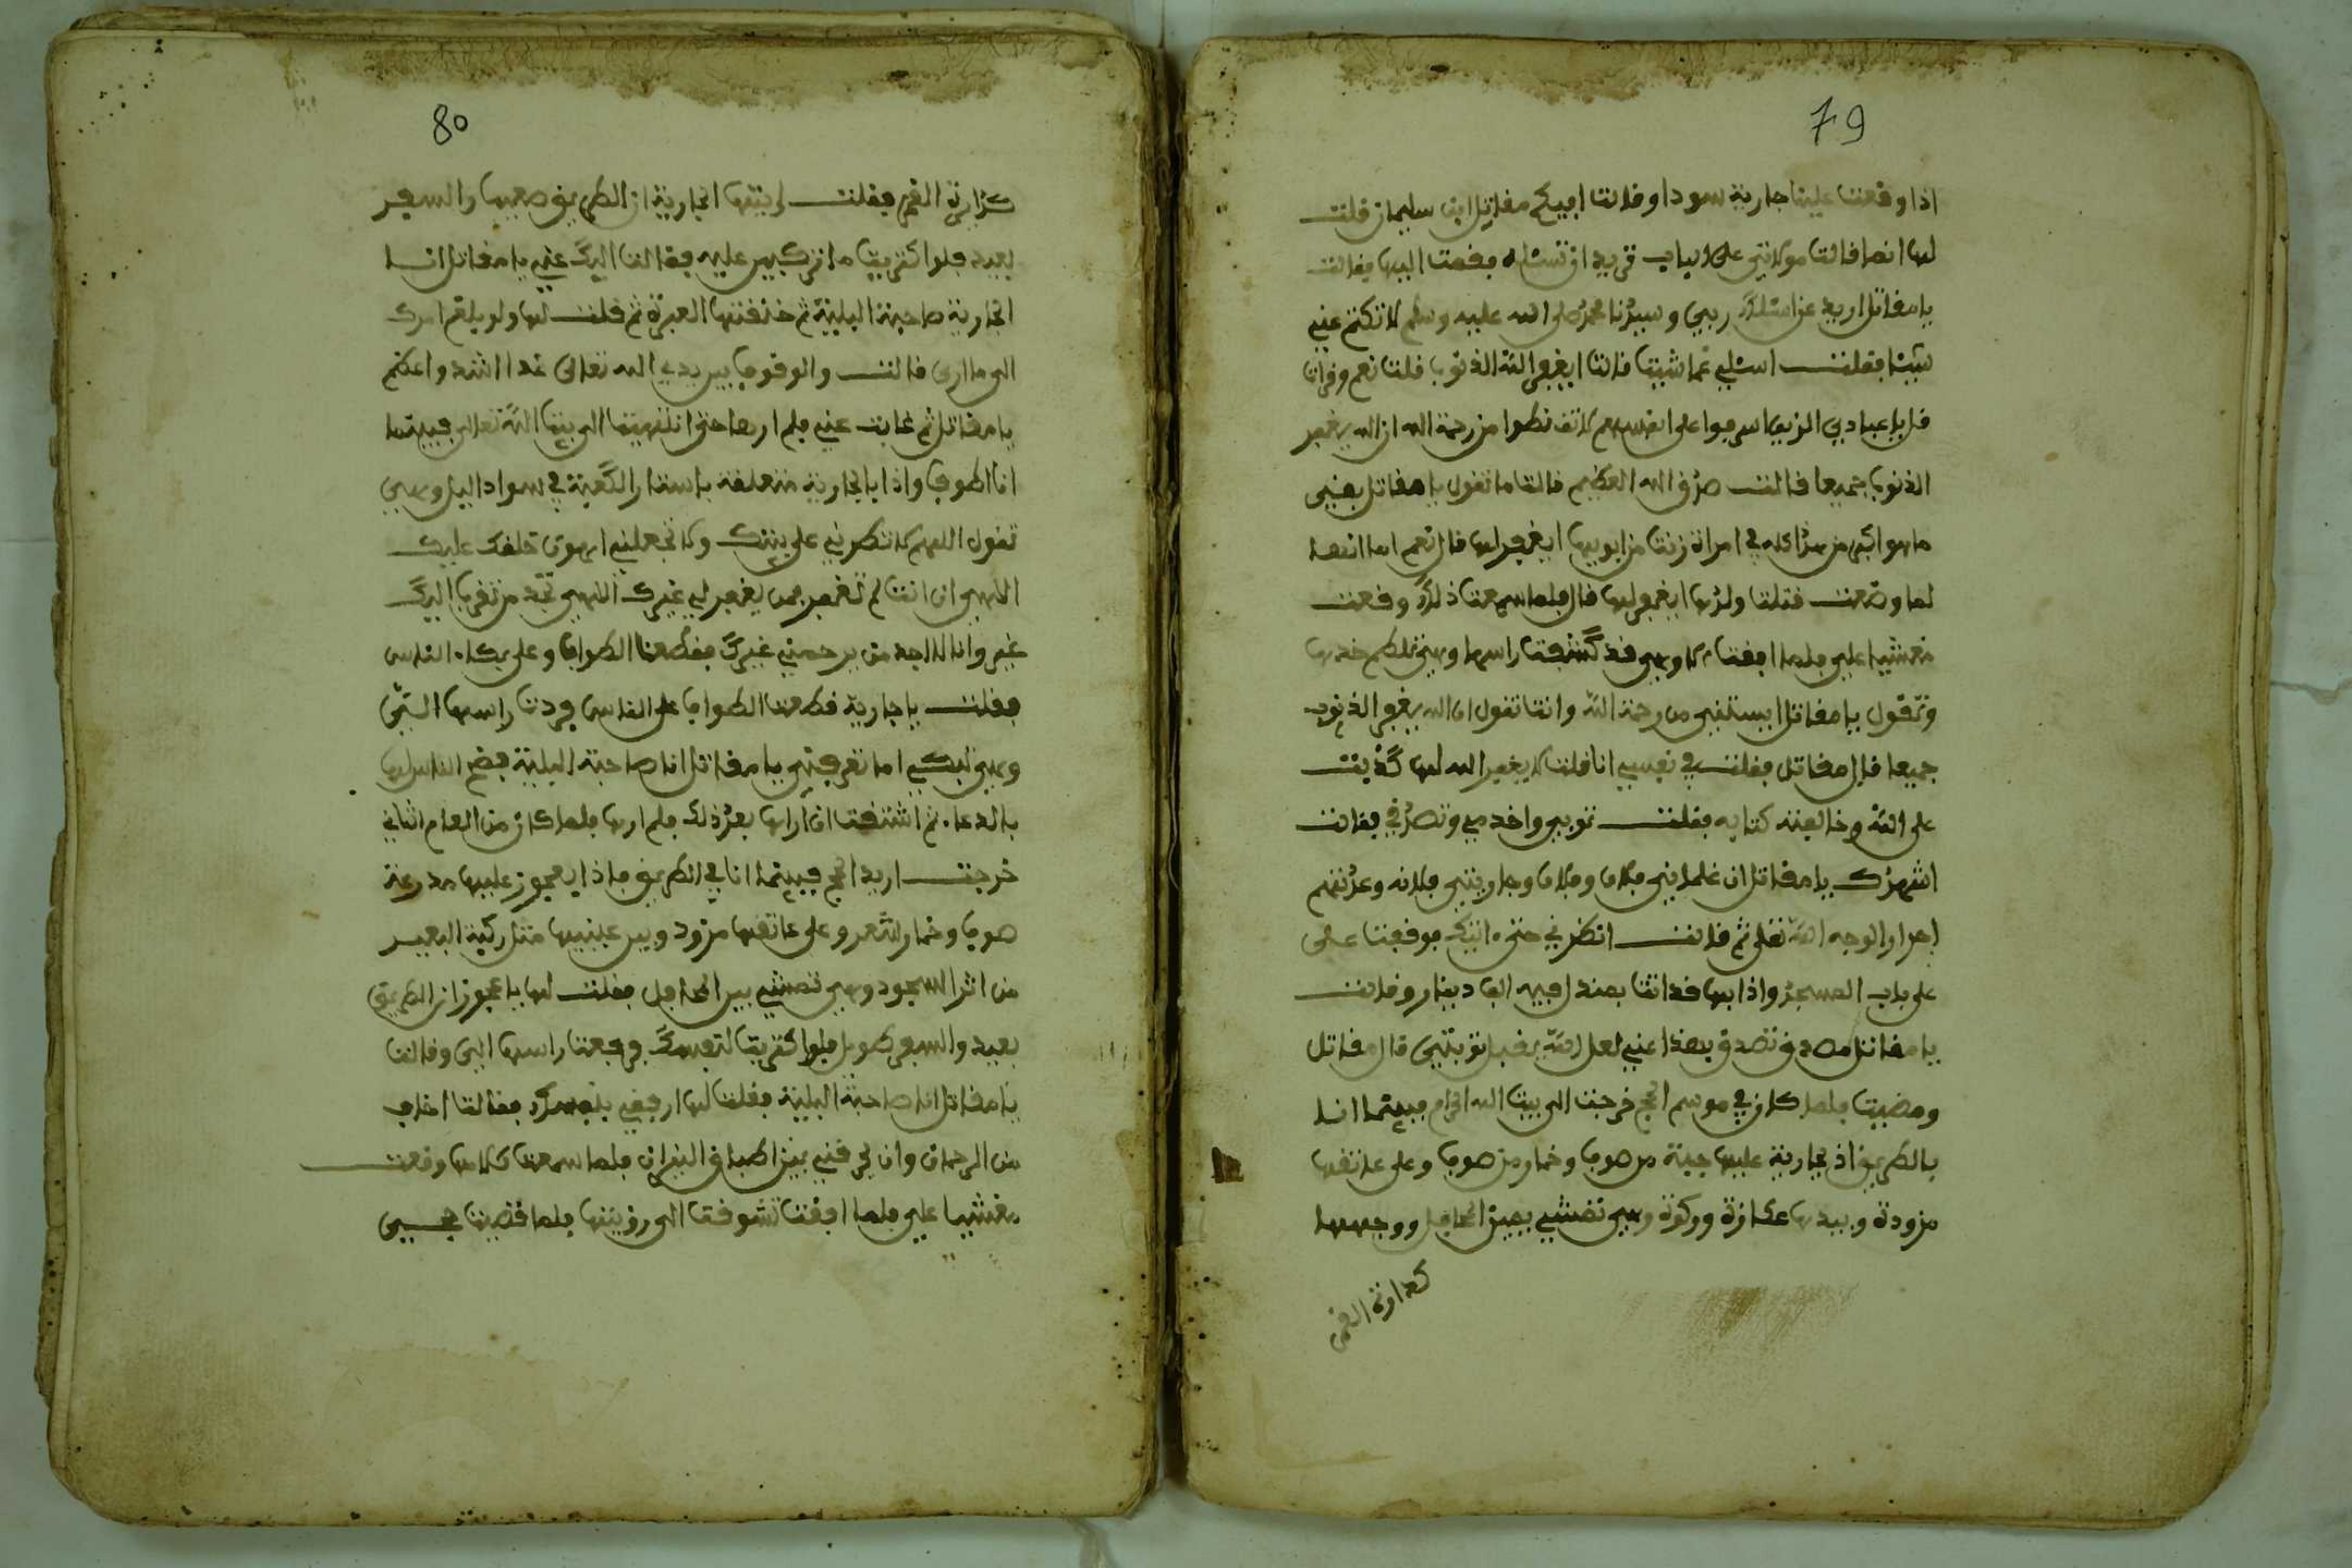 79
اذا وقعت علينا جارية سودا وقالت ابيكم مقاتل ابن سليمان قلت
لها انا قالت مولاتي على الباب تريد ان تسئله فقمت اليها فقالت
يا مقاتل اريد عن اسئلك ربي وسيدنا محمد صلى الله عليه وسلم لا تكتم عني
شيئا فقلت اسئلي عما شيت قالت ايغفر الله الذنوب قلت نعم وقرات
قل يا عبادي الذين اسرفوا على انفسهم لا تقنطوا من رحمة الله ان الله يغفر
الذنوب جميعا قالت صدق الله العظيم قالت ما تقول يا مقاتل بعني
ما هو اكبر من هذا كله في امراة زنت من ابويها ايغفر لها قال نعم اما انها
لما وضعت قتلت ولدها ايغفر لها قال فلما سمعت ذلك وقعت
مغشيا علي فلما افقت وهي قد كشفت راسها وهي تلطم خدها
وتقول يا مقاتل ايستني من رحمة الله وانت تقول ان الله يغفر الذنوب
جميعا قال مقاتل فقلت في نفسي انا قلت لا يغفر الله لها كذبت
على الله وخالفت كتابه فقلت توبي واخدمي وتصدقي فقالت
اشهدك يا مقاتل ان غلماني فلان وفلان وجاريتي فلانه وعدتهم
احرار الوجه الله تعلى ثم قالت انظرني حتى اتيك فوقفت على
على باب المسجد واذا بها قد اتت بمنديل فيه الف دينار وقالت
يا مقاتل تصدق بهذا عني لعل الله يقبل توبتي قال مقاتل
ومضيت فلما كان في موسم الحج خرجت الى بيت الله الحرام فبينما انا
بالطريق اذ بجارية عليها جبة من صوف وخمار من صوف وعلى عاتقها
مزودة وبيدها عكازة وركوة وهي تمشي بين المحافل ووجهها
كدارة القمر
80
كدارة القمر فقلت لها ايتها الجارية ان الطريق صعيب والسفر
بعيد فلو اكتريت ما تركبين عليه فقالت اليك عني يا مقاتل انا
الجارية صاحبة البلية ثم خنقتها العبرة ثم قلت لها ولو بلغ امرك
الى ما ارى قالت والوقوف بين يدي الله تعالى غدا اشد واعظم
يا مقاتل ثم غابت عني فلم ارها حتى انتهيت الى بيت الله تعالى فبينما
انا اطوف واذا بالجارية متعلقة باستار الكعبة في سواد اليل وهي
تقول اللهم لا تطردني على بيتك ولا تجعلني اهون خلقك عليك
الاهي ان انت لم تغفر فمن يغفر لي غيرك الاهي تجد من تقرب اليك
غيري وانا لا اجد من يرحمني غيرك فقطعنا الطواف وعلى بكاء الناس
فقلت يا جارية قطعت الطواف على الناس فردت راسها التي
وهي تبكي اما تعرفني يا مقاتل انا صاحبة البلية فضج الناس لها
بالدعاء ثم اشتقت ان اراها بعد ذلك فلم ارها فلما كان من العام الثاني
خرجت اريد الحج فبينما انا في الطريق فاذا بعجوز عليها مدرعة
صوف وخمار شعر وعلى عاتقها مزود وبين عينيها مثل ركبة البعير
من اثر السجود وهي تمشي بين المحافل فقلت لها يا عجوز ان الطريق
بعيد والسفر طويل فلو اكتريت لنفسك فرفعت راسها الي وقالت
يا مقاتل انا صاحبة البلية فقلت لها ارفقي بنفسك فقالت اخاف
من الرحمان وان يحرقني بين اطباق النيران فلما سمعت كلامها وقعت
مغشيا علي فلما افقت تشوقت الى رؤيتها فلما قضيت حجي